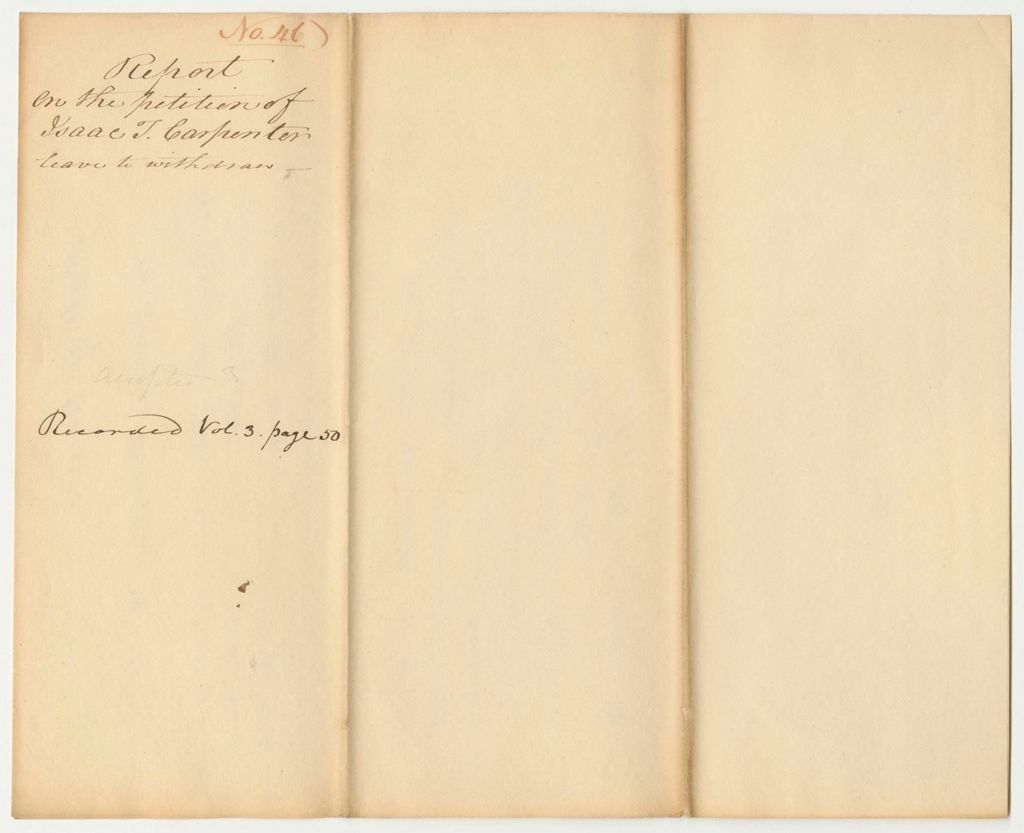 No. 46)
Report
on the petition of
Isaac T. Carpenter
leave to withdraw —
Recorded Vol. 3. page 50